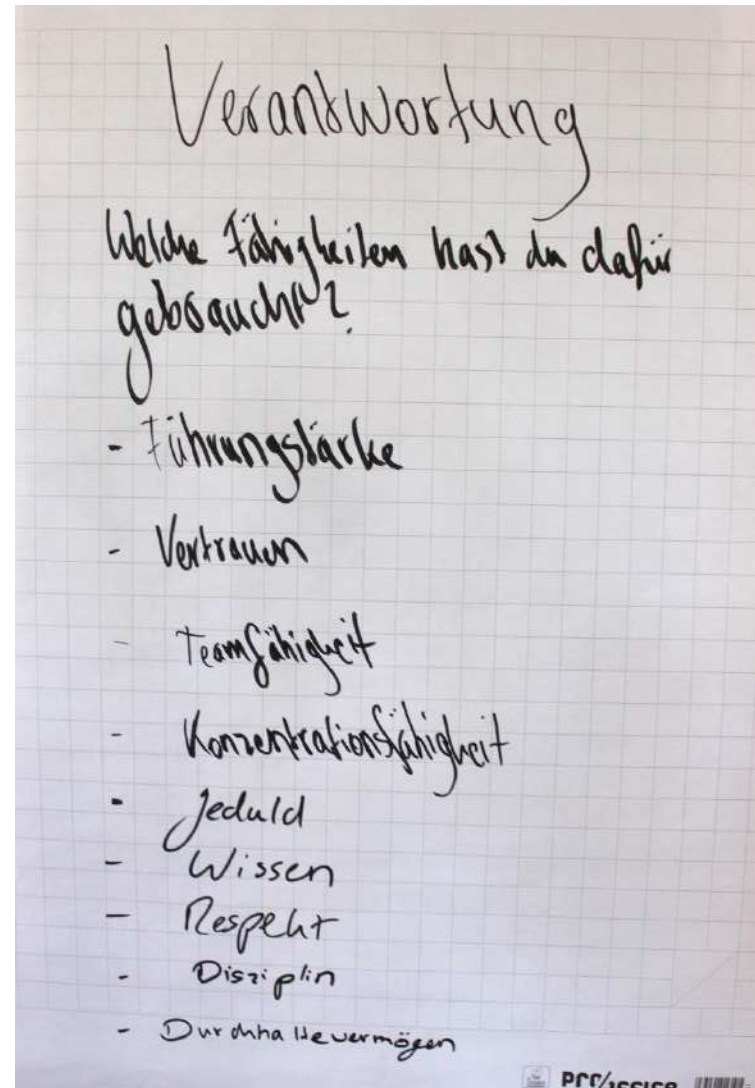 Verantwortung
Welche Fähigkeiten hast du dafür
gebraucht?
- Führungstärke
- Vertrauen
- Teamfähigkeit
- Konzentrationsfähigkeit
- Jeduld
- Wissen
- Respekt
- Disziplin
- Durchhaltevermögen